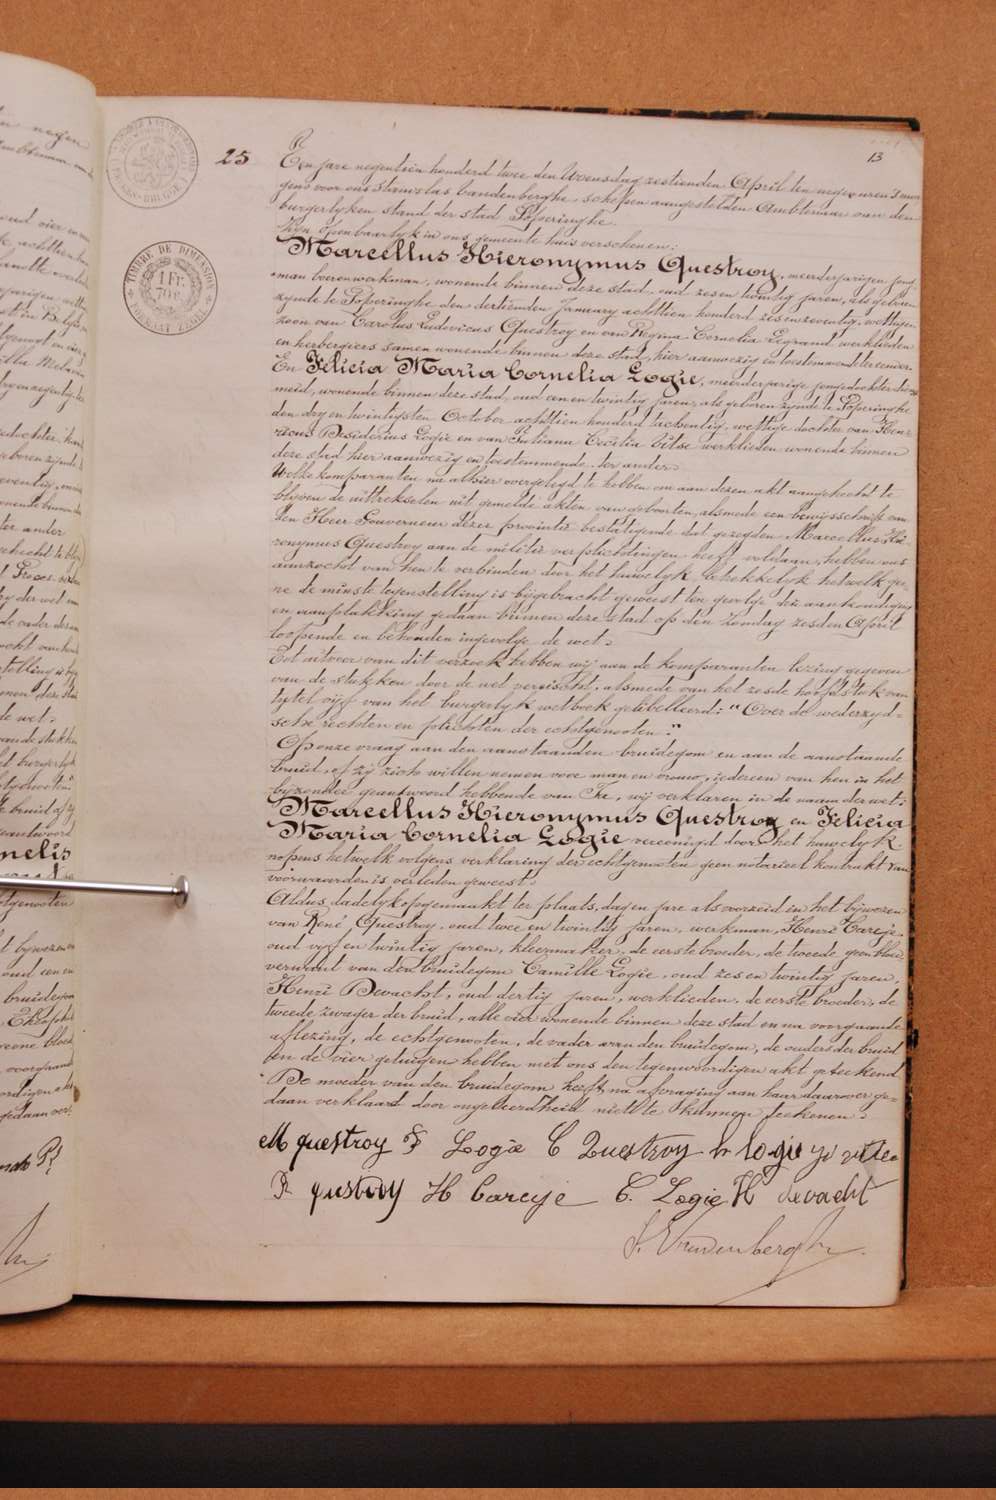 13
25
En jare negentien honderd twee den Woensdag zestienden April ten negen uren 's mor-
gens voor ons Stanislas Vandenberghe schepen aangestelden Ambtenaar van den
burgerlyken stand der stad Poperinghe
zyn openbaarlyk in ons gemeente huis verschenen:
Marcellus Hieronymus Questroy, meerderjarigen jong-
man boerenwerkman, wonende binnen deze stad, oud zes en twintig jaren, als geboren
zynde te Poperinghe den dertienden January achttien honderd zes en zeventig, wettigen
zoon van Carolus Ludovicus Questroy en van Regina Cornelia Legrand werklieden
en herbergiers samen wonende binnen deze stad, hier aanwezig en toestemmende ter eener.
En Felicia Maria Cornelia Logie, meerderjarige jongedochter dienst-
meid, wonende binnen deze stad, oud een en twintig jaren, als geboren zynde te Poperinghe
den dry en twintigsten October achttien honderd tachentig, wettige dochter van Hen-
ricus Desiderius Logie en van Juliana Cecilia Vitse werklieden wonende binnen
deze stad hier aanwezig en toestemmende ter ander.
Welke komparanten na alhier overgelegd te hebben om aan dezen akt aangehecht te
blyven de uittrekselen uit gemelde akten van geboorten, alsmede een bewysschrift van
den Heer Gouverneur dezer provintie bestatigende dat gezegden Marcellus Hie-
ronymus Questroy aan de militie verplichtingen heeft voldaan, hebben ons
aanzocht van hen te verbinden door het huwelyk, betrekkelyk hetwelk gee-
ne de minste tegenstelling is bygebracht geweest ten gevolge der aankondiging
en aanplakking gedaan binnen deze stad op den Zondag zesden April
loopende en behouden ingevolge de wet.
Tot uitvoer van dit verzoek hebben wy aan de komparanten lezing gegeven
van de stukken door de wet vereischt, alsmede van het zesde hoofdstuk van
tytel vyf van het burgerlyk wetboek gelibelleerd: "Over de wederzyd-
sche rechten en plichten der echtgenooten."
Op onze vraag aan den aanstaanden bruidegom en aan de aanstaande
bruid, of zy zich willen nemen voor man en vrouw, iedereen van hen in het
byzonder geantwoord hebbende van Ja, wy verklaren in de naam der wet:
Marcellus Hieronymus Questroy en Felicia
Maria Cornelia Logie vereenigd door het huwelyk
nopens hetwelk volgens verklaring der echtgenooten geen notarieel kontrakt van
voorwaarden is verleden geweest.
Aldus dadelyk opgemaakt ter plaats, dag en jare als voorzeid in het bywezen
van René Questroy, oud twee en twintig jaren, werkman, Henri Careye
oud vyf en twintig jaren, kleermaker, de eerste broeder, de tweede geen bloed-
verwant van den bruidegom Camille Logie, oud zes en twintig jaren,
Henri Dewacht, oud dertig jaren, werklieden, de eerste broeder, de
tweede zwager der bruid, alle vier wonende binnen deze stad en na voorgaande
aflezing, de echtgenooten, de vader van den bruidegom, de ouders der bruid
en de vier getuigen hebben met ons den tegenwoordigen akt geteekend
De moeder van den bruidegom heeft na afvraging aan haar daarover ge-
daan verklaard door ongeleerdheid niet te kunnen teekenen.
M questroy F Logie C Questroy h logie
R questroy H Careye C. Logie H dewacht
S. Vandenberghe
TIMBRE DE DIMENSION
1 Fr.
70 c.
FORMAAT ZEGEL